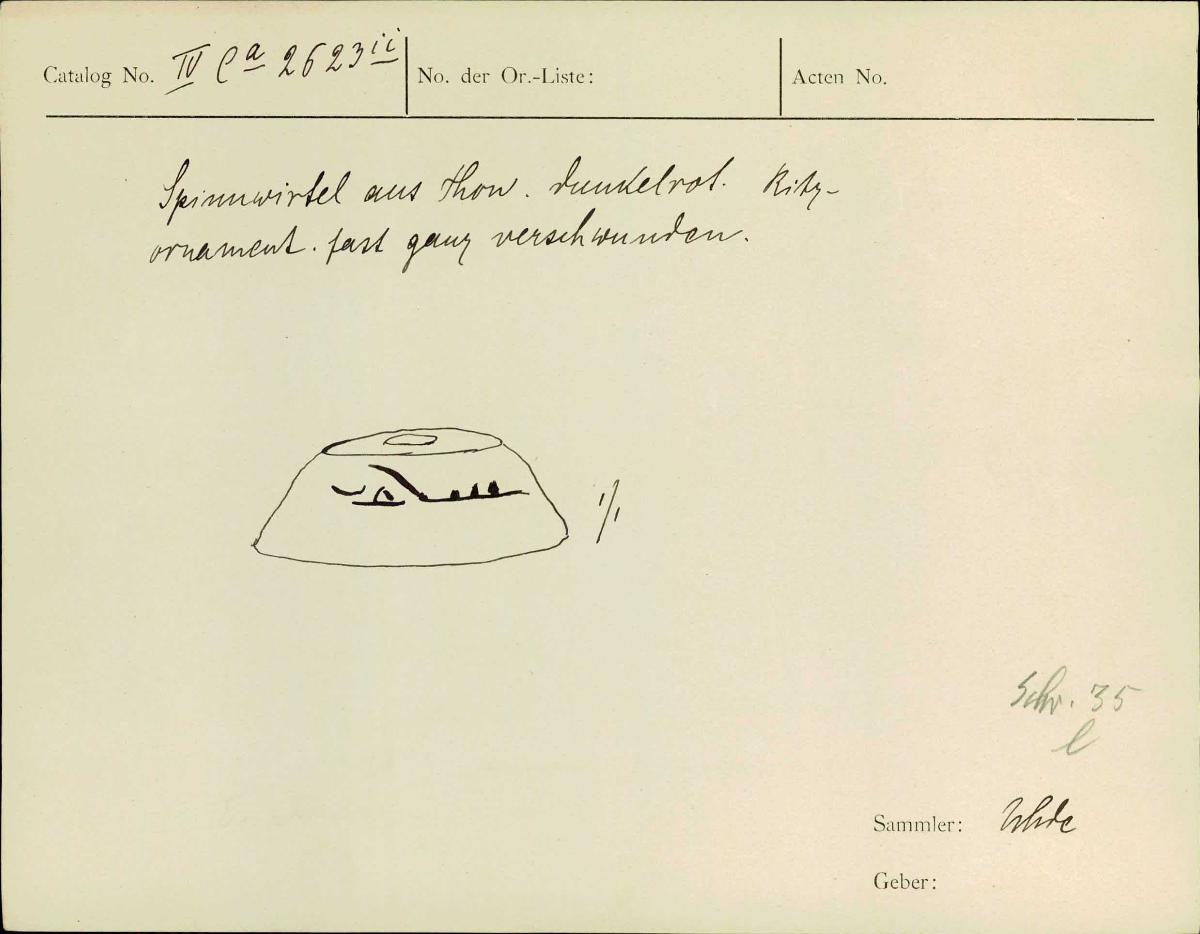 Catalog No. IV Ca 2623 ii No. der Or.-Liste: Acten No.
Spinnwirtel aus Thon. dunkelrot. Ritz-
ornament. fast ganz verschwunden.
1/1
Schr. 35
l
Sammler: Uhde
Geber: